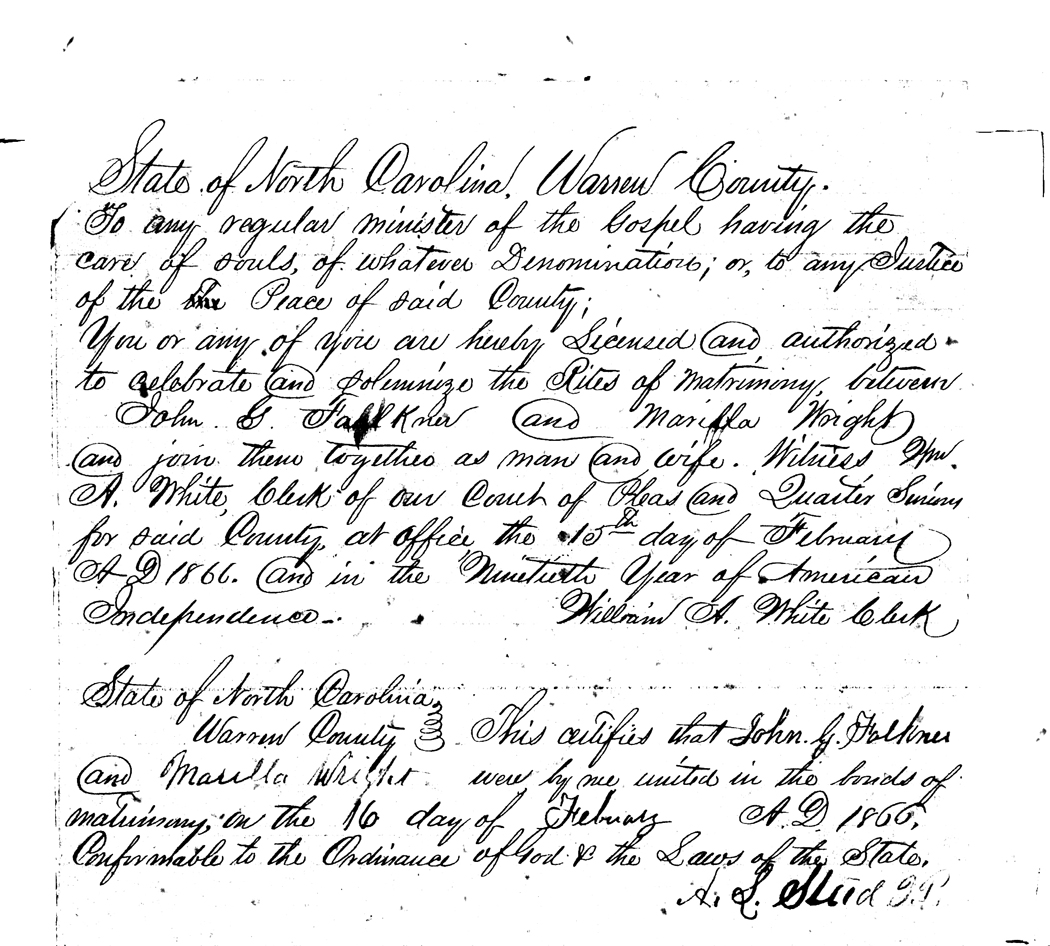 State of North Carolina, Warren County.
To any regular minister of the Gospel having the
care of souls, of whatever Denomination; or, to any Justice
of the the Peace of said County;
You or any of you are hereby Licensed and authorized
to celebrate and solemnize the Rites of Matrimony, between
John G. Faulkner and Marilla Wright
and join them together as man and wife. Witness Wm.
A. White, Clerk of our Court of Pleas and Quarter Sessions
for said County, at office, the 15th day of February
A D 1866. and in the Ninetieth Year of American
Independence. William A. White Clerk
State of North Carolina,
Warren County This certifies that John. G. Falkner
and Marilla Wright were by me united in the bonds of
matrimony, on the 16 day of February A. D. 1866,
Conformable to the Ordinance of God & the Laws of the State.
A. L. J.P.